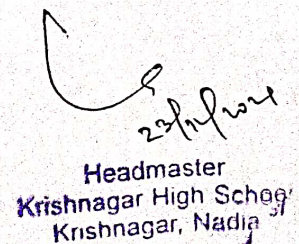 Headmaster
Krishnagar High School
Krishnagar, Nadia